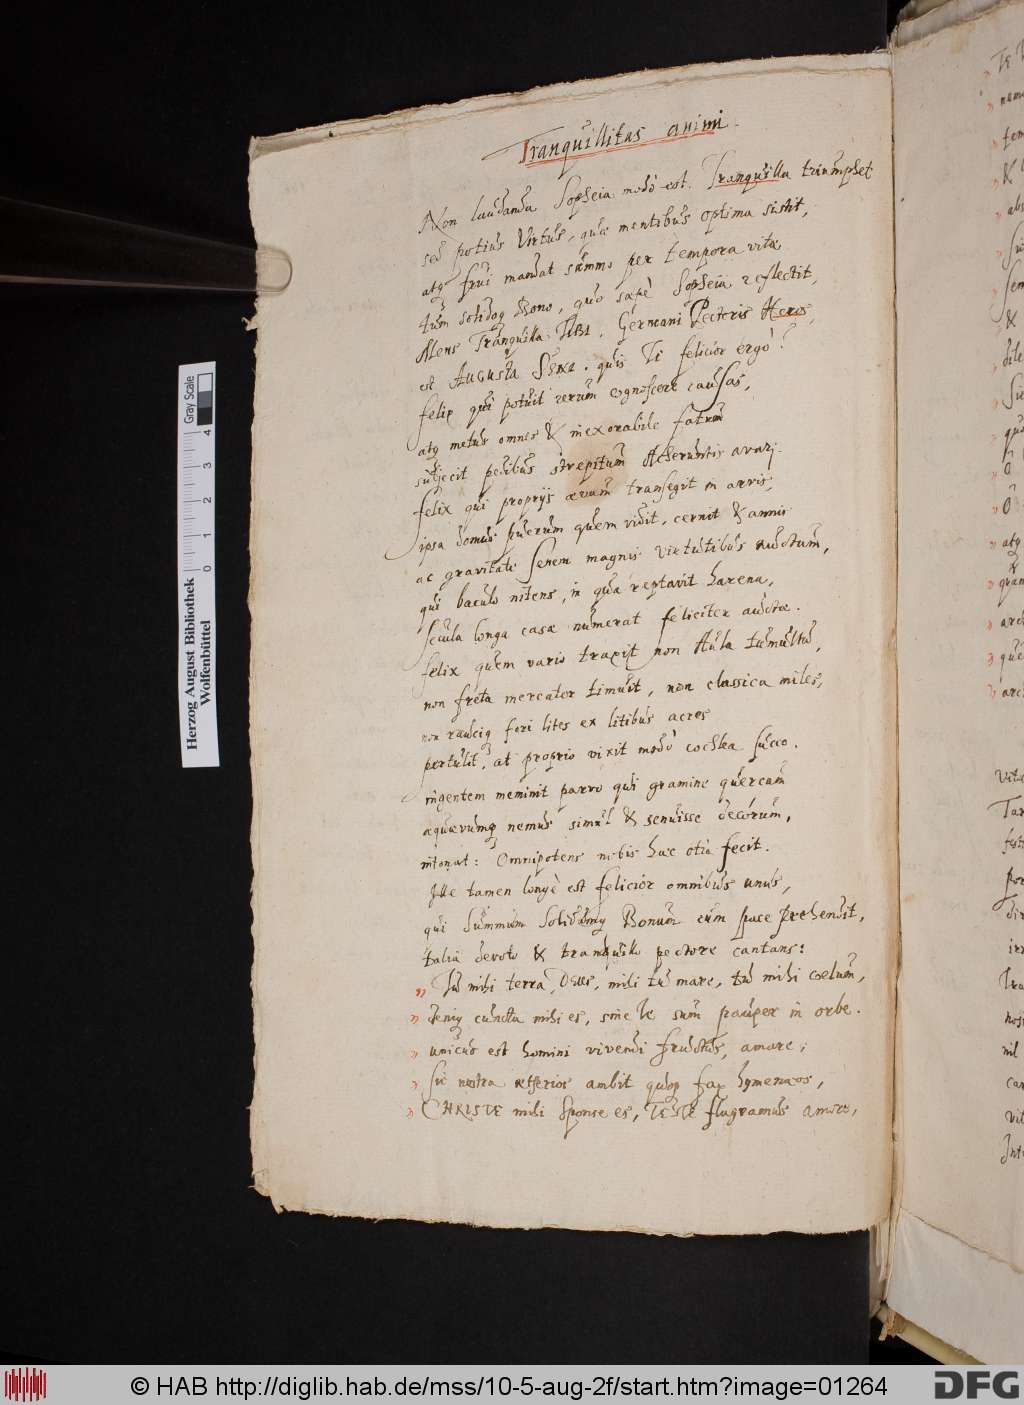 Tranquillitas animi.
Non laudanda Sopheia modò est. Tranquilla triumphet
sed potius Virtus, quæ mentibus optima sistit,
atq frui mandat summo per tempora vitæ
tum solidoq Bono, quo sæpè Sopheia reflectit,
Mens Tranquilla TIBI, Germani Pectoris Heros,
est Augusta Seni. quis Te felicior ergò?
felix qui potuit rerum cognoscere causas,
atq metus omnes & inexorabile fatum
subjecit pedibus strepitum Acheruntis avari.
felix qui proprijs ævum transegit in arvis,
ipsa domus puerum quem vidit, cernit & annis
ac gravitate Senem magnis virtutibus auctum,
qui baculo nitens, in qua reptavit harena,
secula longa casæ numerat feliciter auctæ.
felix quem vario traxit non Aula tumultu,
non freta mercator timuit, non classica miles,
non rauciq fori lites ex litibus acres
pertulit, at proprio vixit modò cochlea succo.
ingentem meminit parvo qui gramine quercum
æquævumq nemus simul & senuisse decorum,
intonat: Omnipotens nobis hæc otia fecit.
Ille tamen longè est felicior omnibus unus,
qui Summum Solidumq Bonum cum pace prehendit,
talia devoto & tranquillo pectore cantans:
„ Tu mihi terra, Deus, mihi tu mare, tu mihi coelum,
„ deniq cuncta mihi es, sine te sum pauper in orbe.
„ unicus est homini vivendi fructus, amare;
„ sic nostra ætherios ambit quoq fax hymenæos,
„ CHRISTE mihi Sponse es, TE flagramus amore,
Herzog August Bibliothek
Wolfenbüttel
0 1 2 3 4
Gray Scale
© HAB http://diglib.hab.de/mss/10-5-aug-2f/start.htm?image=01264
DFG